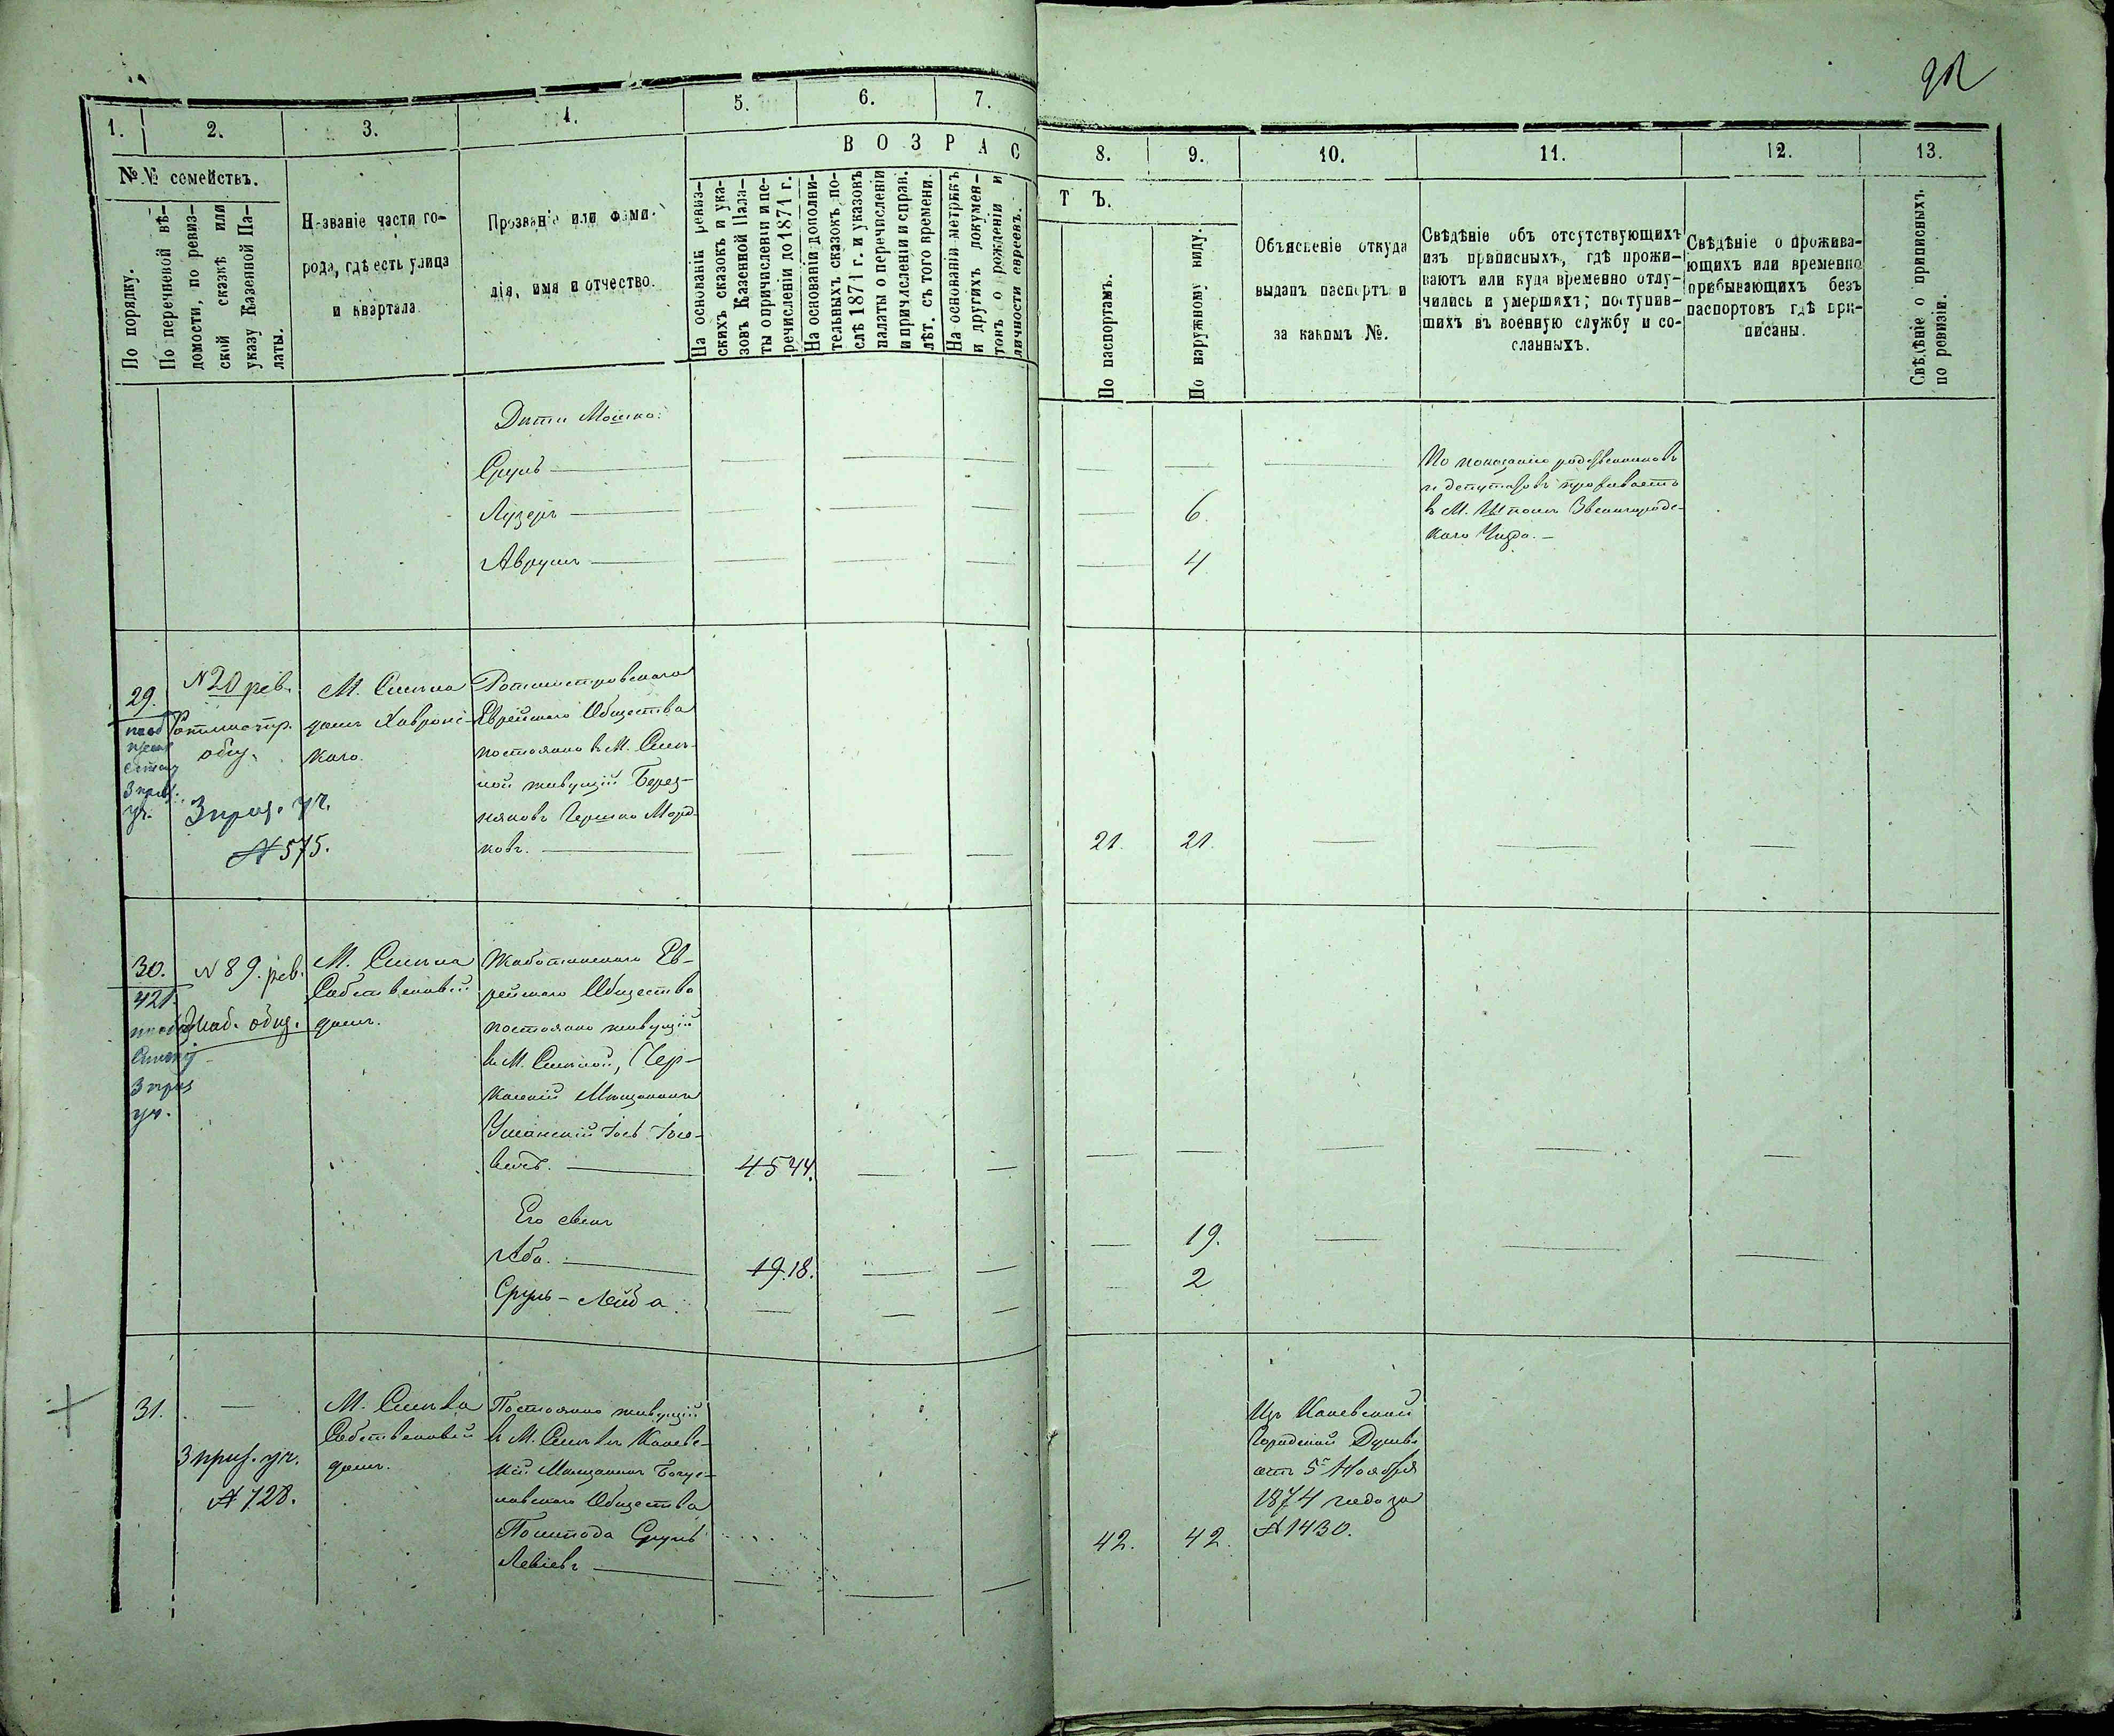 92
1. 2. 3. 4. 5. 6. 7. 8. 9. 10. 11. 12. 13.
В О З Р А С Т Ъ.
№№ семействъ.
По порядку.
По перечневой вѣ-
домости, по ревиз-
ской сказкѣ или
указу Казенной Па-
латы.
Названіе части го-
рода, гдѣ есть улица
и квартала
Прозваніе или фами-
лія, имя и отчество.
На основаніи ревиз-
скихъ сказокъ и ука-
зовъ Казенной Пала-
ты о причисленіи и пе-
речисленіи до 1871 г.
На основаніи дополни-
тельныхъ сказокъ по-
слѣ 1871 г. и указовъ
палаты о перечисленіи
и причисленіи и справ.
лѣт. съ того времени.
На основаніи метрикъ
и другихъ докумен-
товъ о рожденіи и
личности евреевъ.
По паспортамъ.
По наружному виду.
Объясненіе откуда
выданъ паспортъ и
за какимъ №.
Свѣдѣніе объ отсутствующихъ
изъ приписныхъ, гдѣ прожи-
ваютъ или куда временно отлу-
чились и умершихъ; поступив-
шихъ въ военную службу и со-
сланныхъ.
Свѣдѣніе о прожива-
ющихъ или временно
пребывающихъ безъ
паспортовъ гдѣ при-
писаны.
Свѣдѣніе о приписныхъ
по ревизіи.
Дѣти Мошка:
Сруль
Лузеръ 6.
Аврумъ 4
По показанію родственниковъ
и депутатовъ проживаетъ
въ М. Шпола Звенигородс-
каго Уѣзда.
29.
3 приз.
уч.
N 20 рев.
Ротмистр.
общ.
3 приз. уч.
№ 575.
М. Смѣла
домъ
каго.
Ротмистровскаго
Еврейскаго Общества
постоянно въ М. Смѣ-
лой живущій Берез-
няковъ Гершко Морд-
ковъ. 21. 21.
30.
421.
3 приз
уч.
N 89. рев.
Жаб. общ.
М. Смѣла
Собственный
домъ.
Жаботинскаго Ев-
рейскаго Общества
постоянно живущій
въ М. Смѣлой, Чер-
каскій Мѣщанинъ
Уманскій Іось Іосе-
вичъ. 45 44.
Его сынъ
Аба. 19. 18. 19.
Сруль-Лейба. 2
31.
3 приз. уч.
№ 728.
М. Смѣла
Собственный
домъ.
Постоянно живущій
въ М. Смѣлѣ Каневс-
кій Мѣщанинъ Богус-
лавскаго Общества
Сруль
Левіевъ 42. 42.
Изъ Каневской
Городской Думы
отъ 5 Ноября
1874 года за
№ 1430.